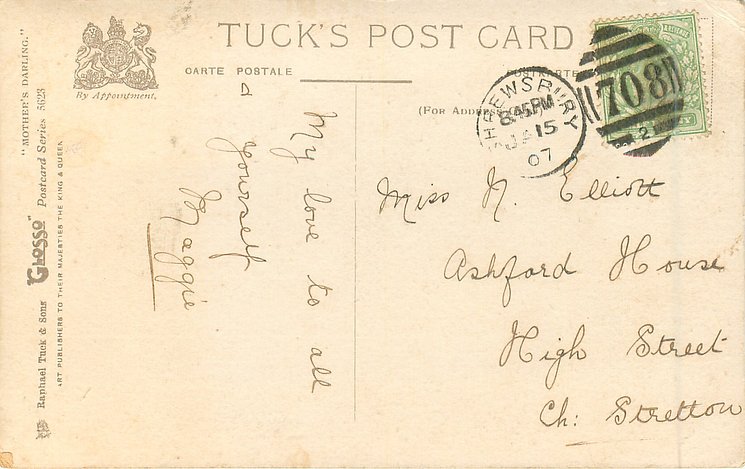 TUCK'S POST CARD
CARTE POSTALE
POSTKARTE
(For Address Only)
By Appointment.
"MOTHER'S DARLING."
Raphael Tuck & Sons' "Glosso" Postcard Series 5623
ART PUBLISHERS TO THEIR MAJESTIES THE KING & QUEEN
SHREWSBURY
8.45PM
JA 15
07
708
2
My love to all
&
yourself
Maggie
Miss N. Elliott
Ashford House
High Street
Ch: Stretton